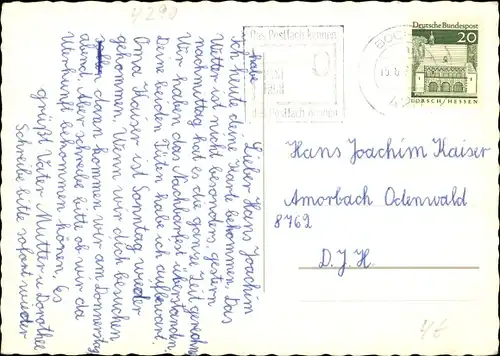 4290
Lieber Hans Joachim
habe
Ich heute deine Karte bekommen, das
Wetter ist nicht besonders, gestern
nachmittag hat es die ganze Zeit geregnet
Wir haben das Nachbarfest überstanden
Deine beiden Tüten habe ich aufbewart.
Oma Kaiser ist Sonntag wieder
gekommen. Wenn wir dich besuchen
sollen dann kommen wir am Donnerstag
abend. Aber schreibe bitte ob wir da
Unterkunft bekommen können. Es
grüßt Vater Mutter u. Dorothee
Schreibe bitte sofort wieder
Das Postfach kennen
das Postfach nennen
Deutsche Bundespost
20
LORSCH/HESSEN
Hans Joachim Kaiser
Amorbach Odenwald
8762
D. J. H.